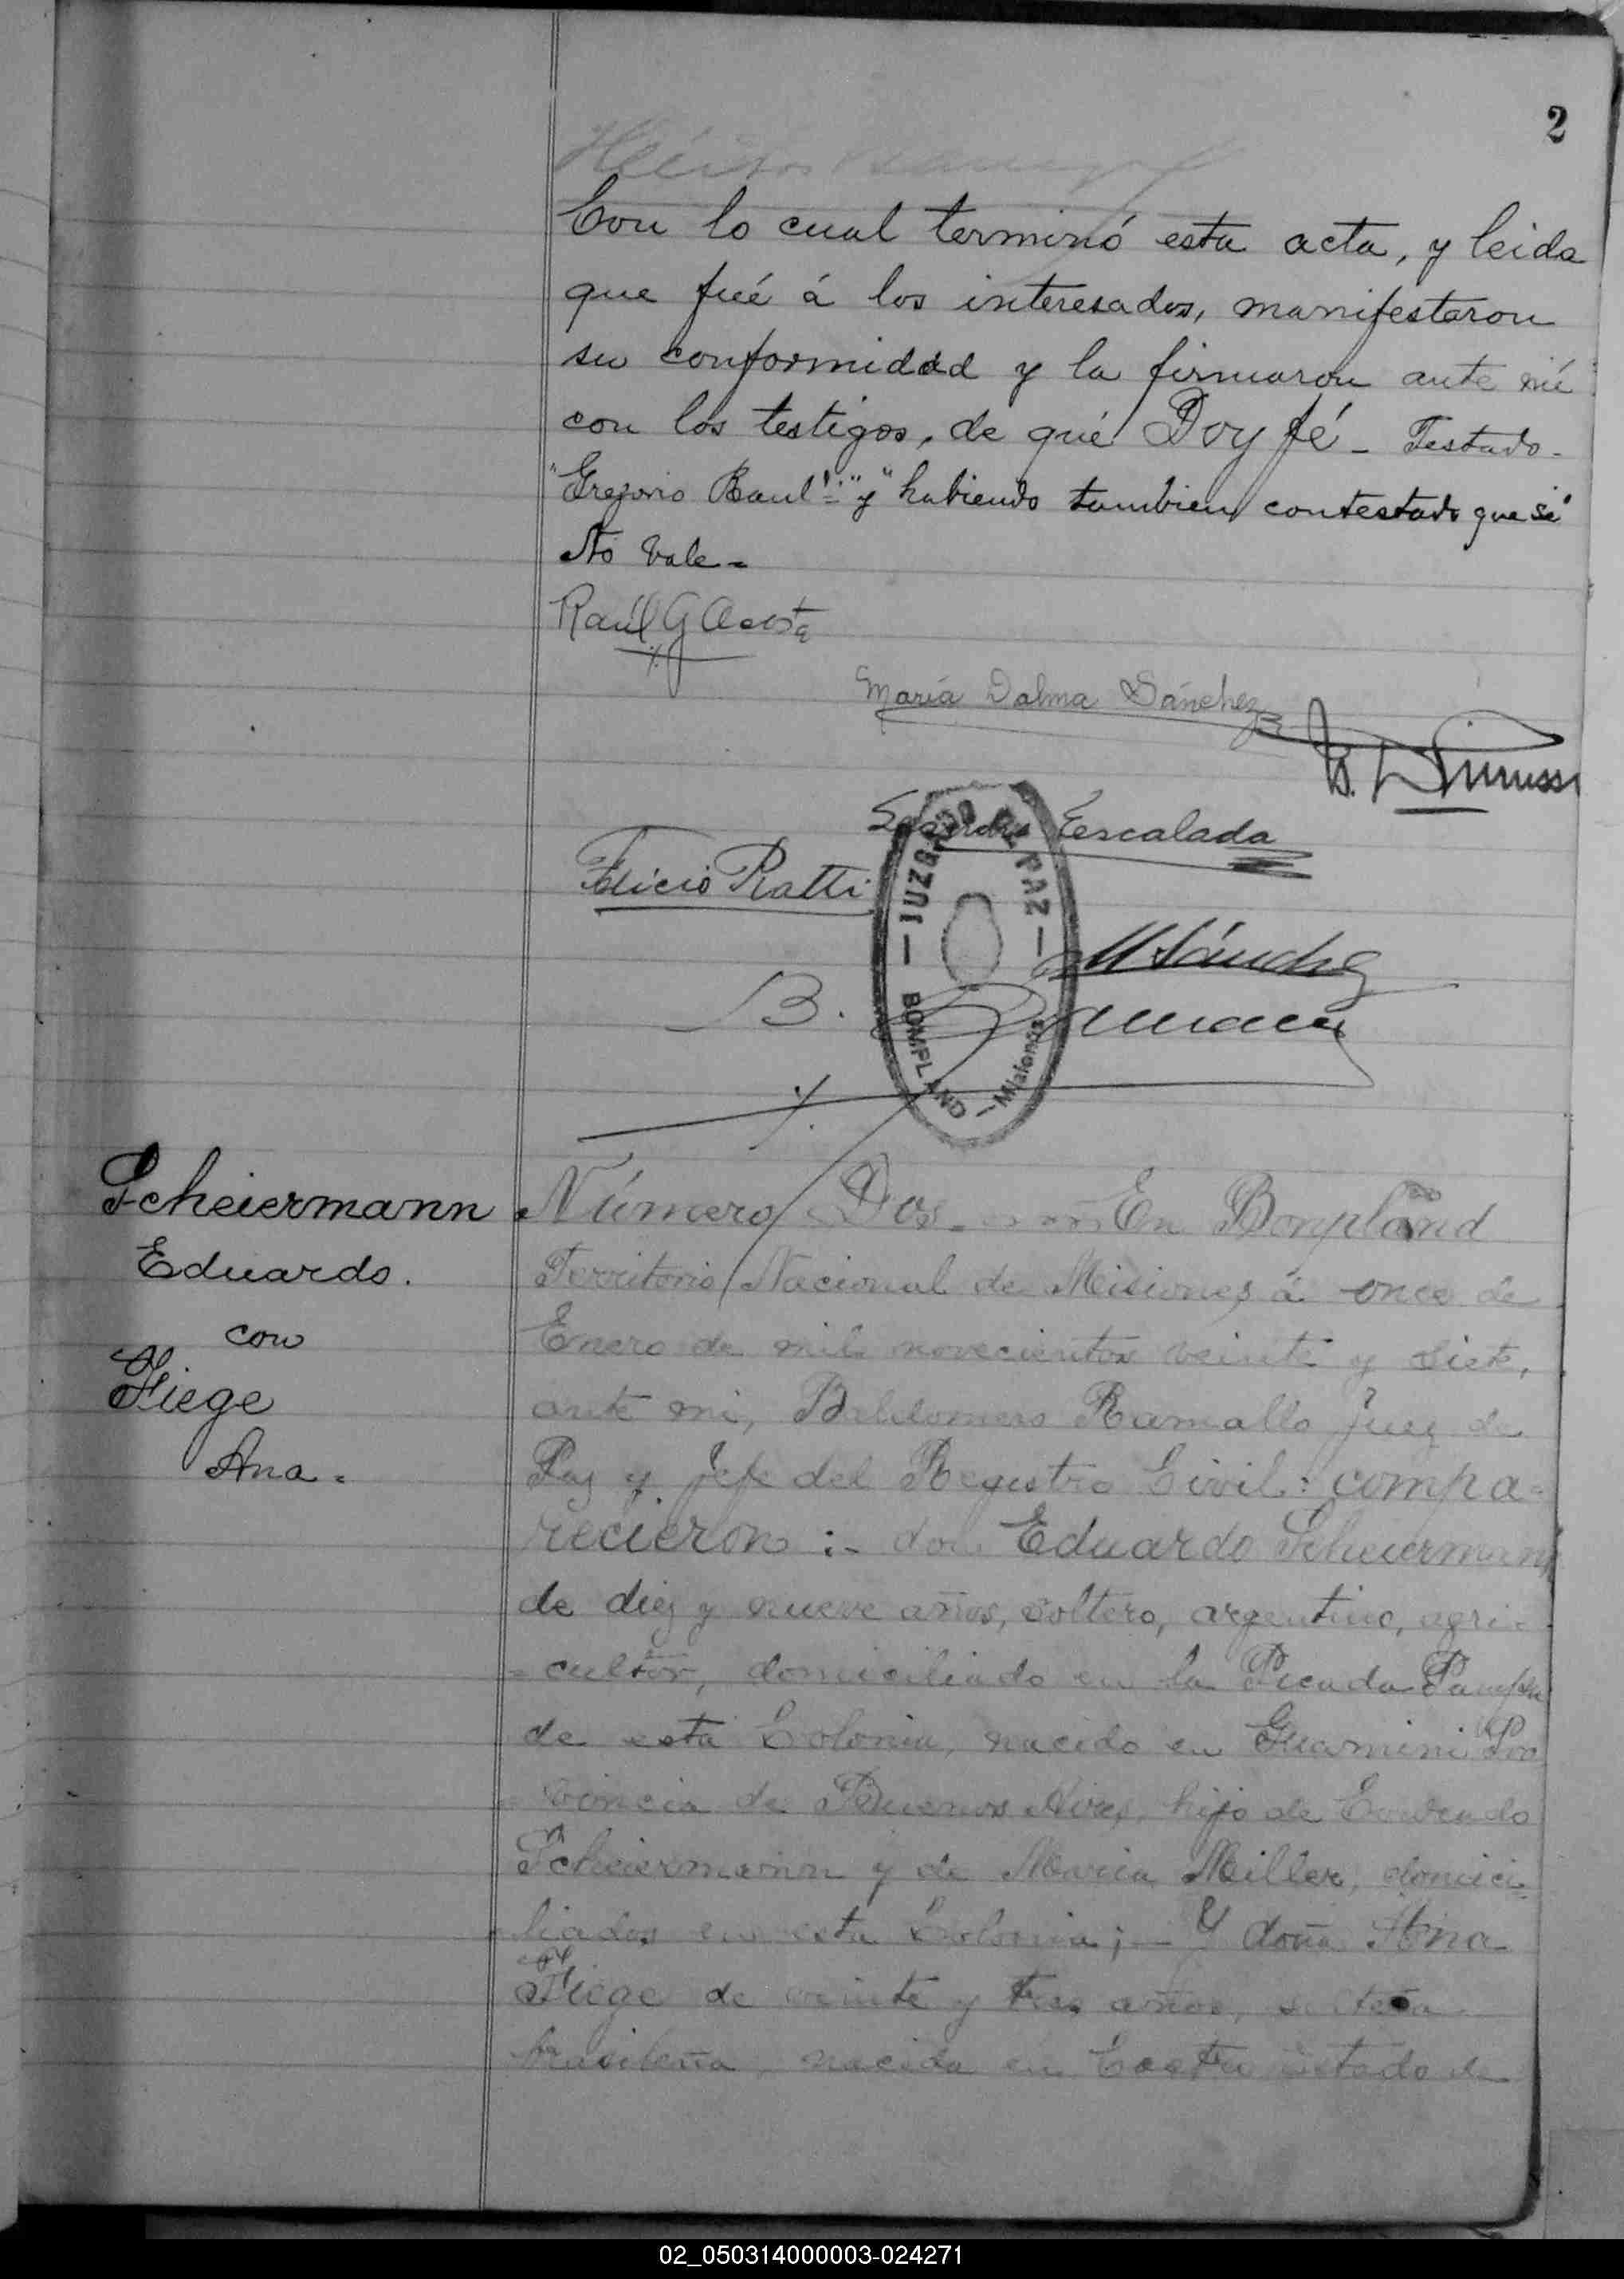 2
Con lo cual terminó esta acta, y leida
que fué á los interesados, manifestaron
su conformidad y la firmaron ante mí
con los testigos, de qué Doy fé - Testado -
"Gregorio Raul" = "y" "habiendo tambien contestado que sí"
No Vale =
Raúl G Acosta
María Dalma Sánchez
Escalada
Felicio Ratti
JUZGADO DE PAZ
M Sánchez
B.
BOMPLAND - Misiones
Scheiermann
Eduardo.
con
Fiege
Ana =
Número Dos - En Bonpland
Territorio Nacional de Misiones, á once de
Enero de mil novecientos veinte y siete,
ante mi, Baldomero Ramallo Juez de
Paz y Jefe del Registro Civil : compa=
recieron :- don Eduardo Scheiermann
de diez y nueve años, soltero, argentino, agri=
=cultor, domiciliado en la Picada Pampa
de esta Colonia, nacido en Guamini Pro
=vincia de Buenos Aires, hijo de
Scheiermann y de Maria Miller, domici=
liados en esta Colonia ; - Y doña Ana
Fiege de veinte y tres años, soltera
brasileña, nacida en Castro Estado de
02_050314000003-024271